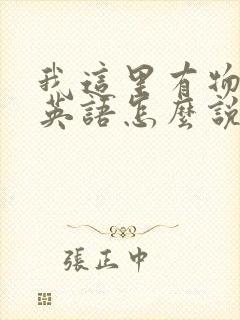 我這里有物
英語怎麼說
張正中